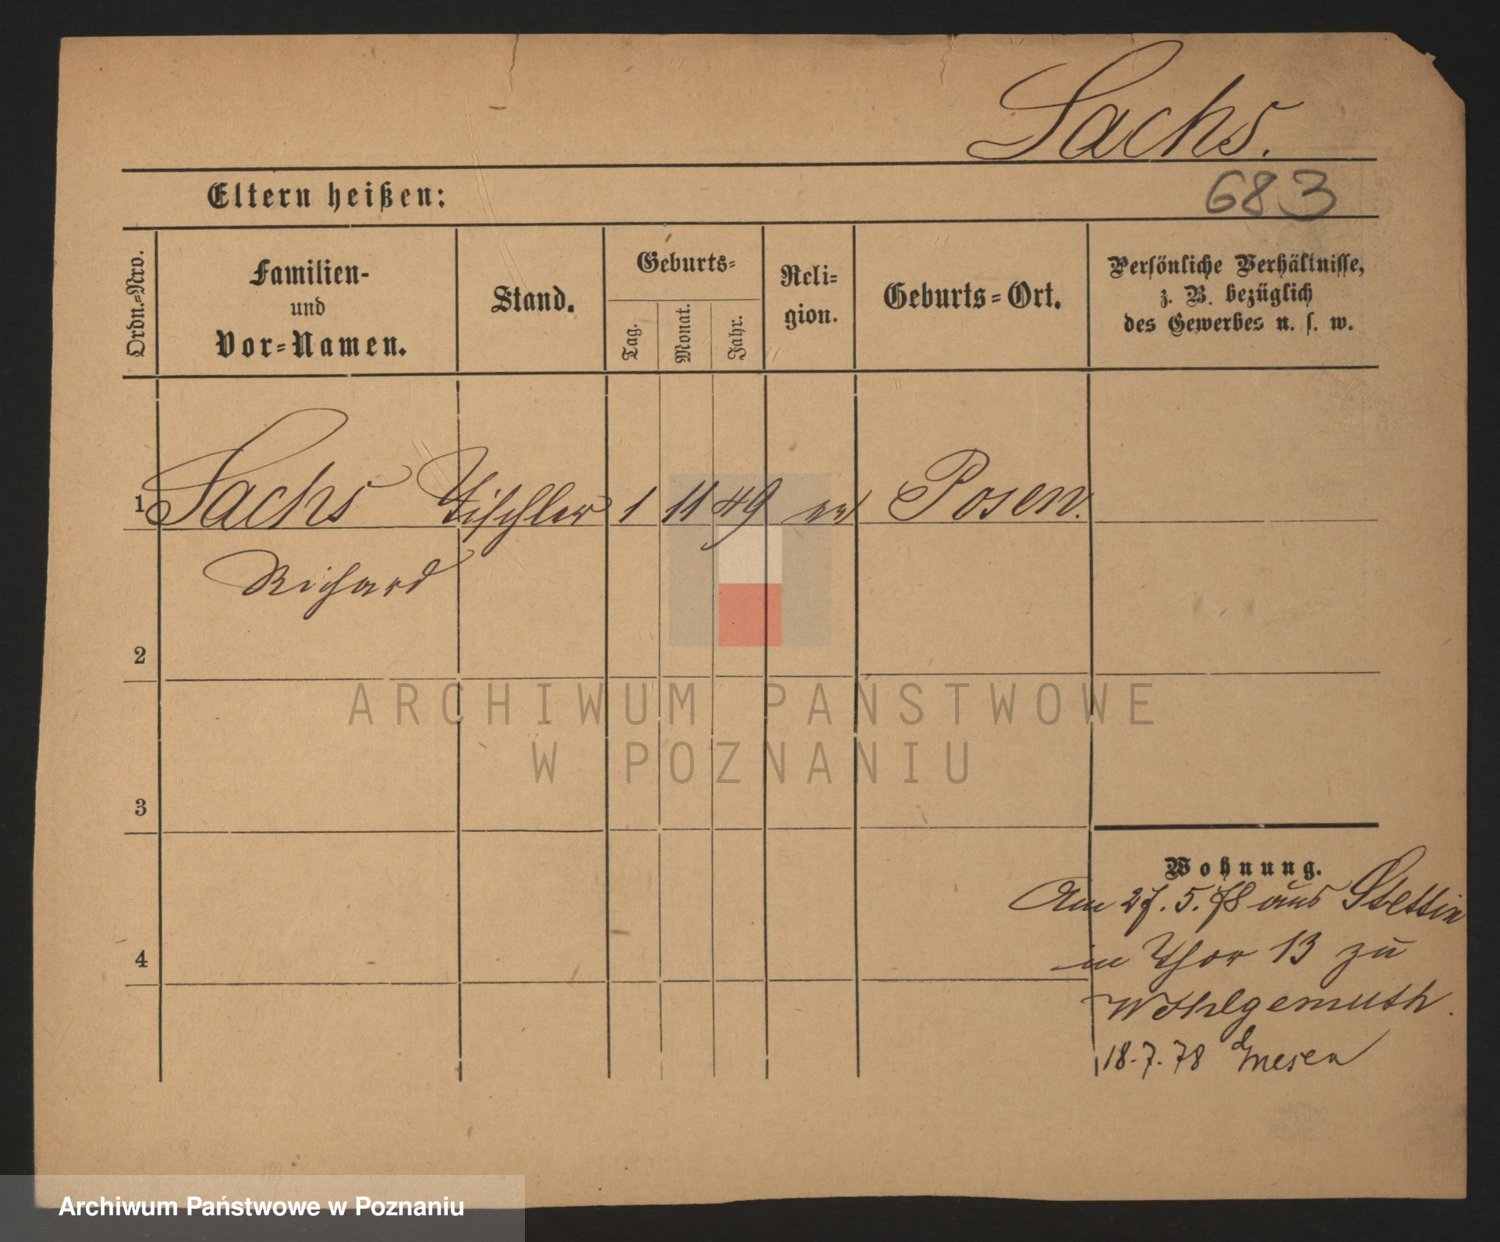 Sachs.
Eltern heißen:
683
Ordn.=Nro.
Familien-
und
Vor=Namen.
Stand.
Geburts=
Tag.
Monat.
Jahr.
Reli=
gion.
Geburts=Ort.
Persönliche Verhältnisse,
z. B. bezüglich
des Gewerbes u. s. w.
1 Sachs Tischler 1 11 49 ev Posen.
Richard
2
3
4
Wohnung.
Am 27.5.78 aus Stettin
in Thor 13 zu
Wohlgemuth.
18.7.78 Gnesen
ARCHIWUM PAŃSTWOWE
W POZNANIU
Archiwum Państwowe w Poznaniu